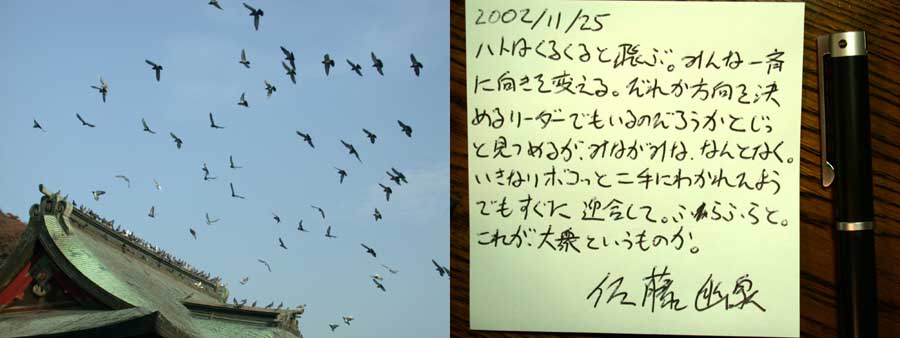 2002/11/25
ハトはくるくると飛ぶ。みんな一斉
に向きを変える。だれか方向を決
めるリーダーでもいるのだろうかとじっ
と見つめるが、みながみな、なんとなく。
いきなりボコっと二手にわかれたよう
でもすぐに迎合して。ふらふらと。
これが大衆というものか。
佐藤幽泉